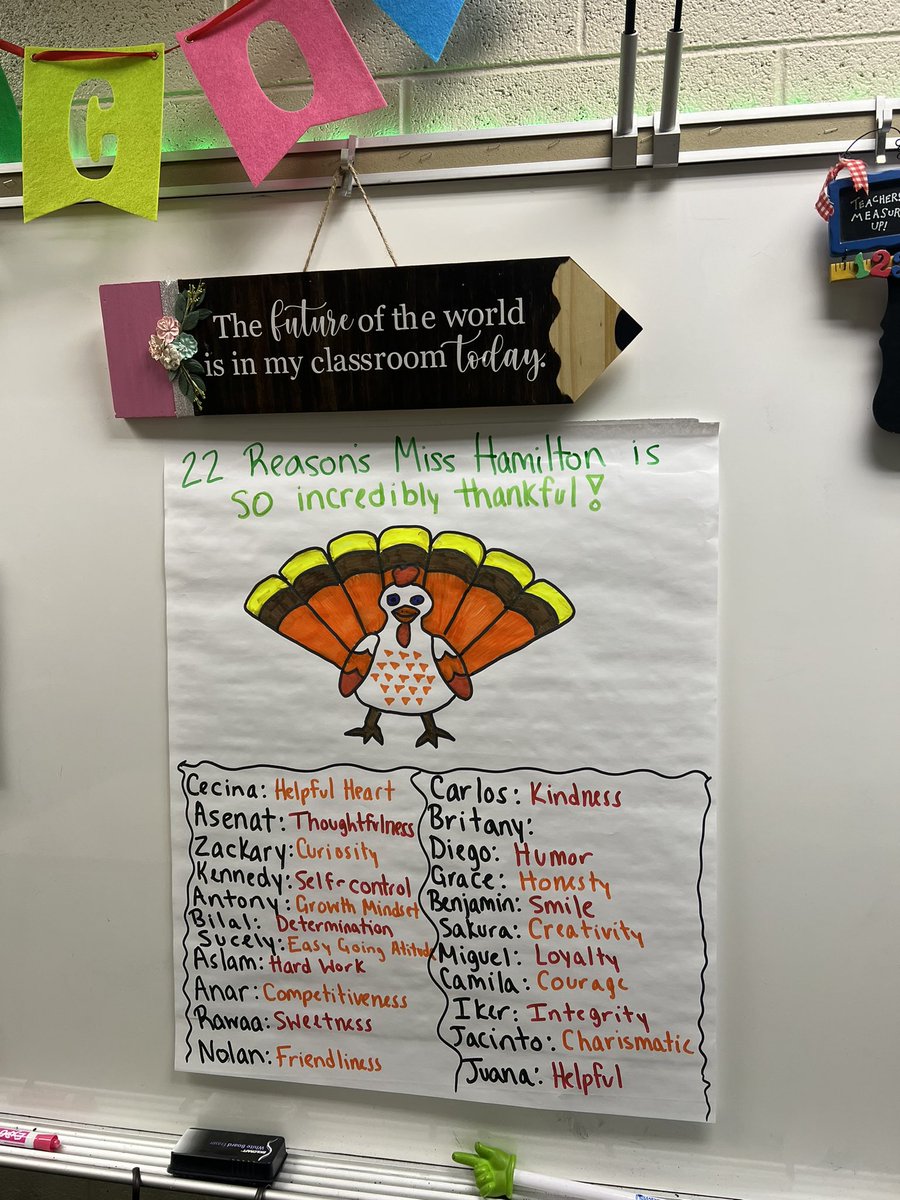 C O
TEACHERS
MEASURE
UP!
123
The future of the world
is in my classroom today.
22 Reasons Miss Hamilton is
so incredibly thankful!
Cecina: Helpful Heart
Asenat: Thoughtfulness
Zackary: Curiosity
Kennedy: Self-control
Antony: Growth Mindset
Bilal: Determination
Sucely: Easy Going Atitude
Aslam: Hard Work
Anar: Competitiveness
Rawaa: Sweetness
Nolan: Friendliness
Carlos: Kindness
Britany:
Diego: Humor
Grace: Honesty
Benjamin: Smile
Sakura: Creativity
Miguel: Loyalty
Camila: Courage
Iker: Integrity
Jacinto: Charismatic
Juana: Helpful
White Board Eraser